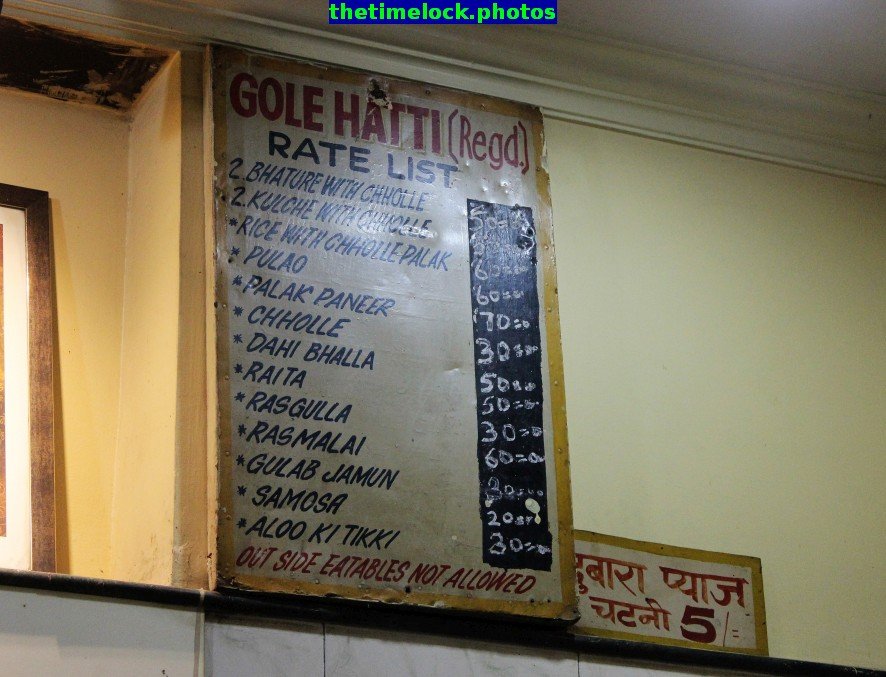 thetimelock.photos
GOLE HATTI (Regd.)
RATE LIST
2. BHATURE WITH CHHOLLE 50=00
2. KULCHE WITH CHHOLLE
* RICE WITH CHHOLLE PALAK 60=00
* PULAO 60=00
* PALAK PANEER 70=00
* CHHOLLE 30=00
* DAHI BHALLA 50=00
* RAITA 50=00
* RASGULLA 30=00
* RASMALAI 60=00
* GULAB JAMUN 30=00
* SAMOSA 20=00
* ALOO KI TIKKI 30=00
OUT SIDE EATABLES NOT ALLOWED
दुबारा प्याज
चटनी 5/=